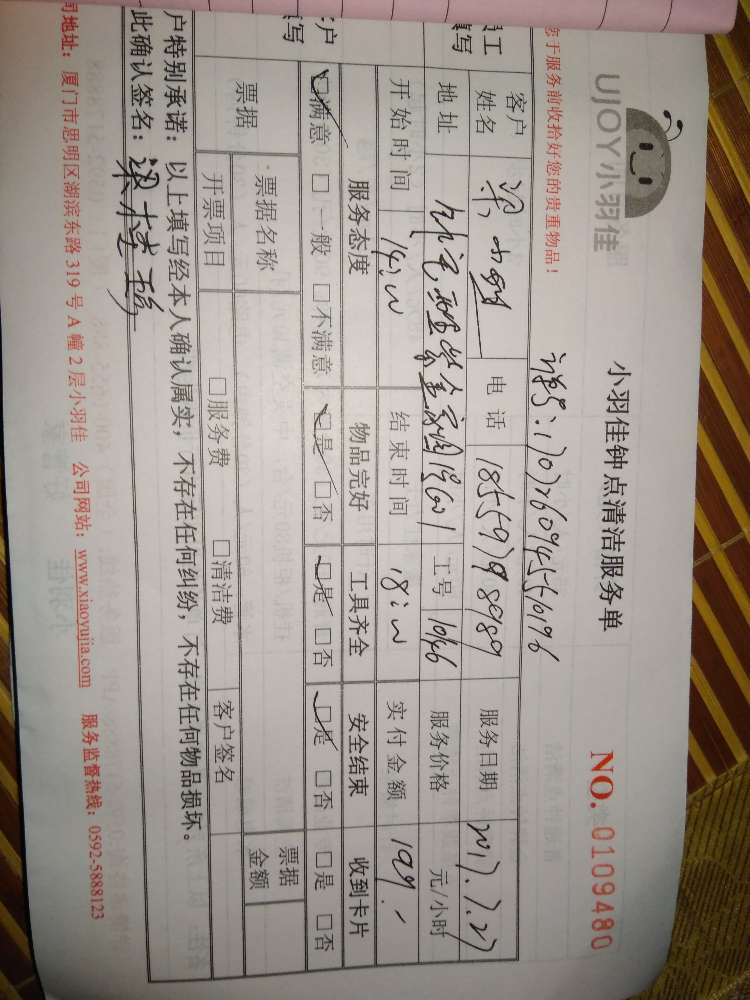 UJOY小羽佳
小羽佳钟点清洁服务单
NO.0109480
您于服务前收拾好您的贵重物品!
员工
填写
客户
姓名
梁小姐
电 话
18559798989
服务日期
2017.7.27
地 址
工号
服务价格
元/小时
开始时间
14:00
结束时间
18:00
实付金额
户
写
服务态度
物品完好
工具齐全
安全结束
收到卡片
☑满意 □一般 □不满意
☑是 □否
☑是 □否
☑是 □否
□是 □否
票据
票据名称
票据
金额
开票项目
□服务费 □清洁费
客户签名
户特别承诺: 以上填写经本人确认属实,不存在任何纠纷,不存在任何物品损坏。
此确认签名:
司地址: 厦门市思明区湖滨东路 319 号 A 幢 2 层小羽佳 公司网站: www.xiaoyujia.com 服务监督热线: 0592-5888123